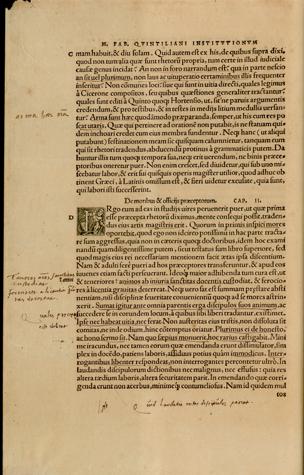 M. FAB. QVINTILIANI INSTITVTIONVM
C mam habuit, & diu solam. Quid autem est ex his, de quibus supra dixi,
quod non tum alia quæ sunt rhetorū propria, tum certe in illud iudiciale
causæ genus incidat? An non in foro narrandum est? qua in parte nescio
an sit uel plurimum, non laus ac uituperatio certaminibus illis frequenter
inseritur? Non cōmunes loci: siue qui sunt in uitia directi, quales legimus
à Cicerone compositos, seu quibus quæstiones generaliter tractantur:
quales sunt editi à Quinto quoque Hortensio, ut, sit'ne paruis argumentis
credendum, & pro testibus, & in testes in medijs litium medullis uersan-
tur? Arma sunt hæc quodāmodo præparanda, semper, ut his cum res po-
scat utaris. Quæ qui pertinere ad orationē non putabit, is ne statuam qui-
dem inchoari credet cum eius membra fundentur. Neqꝫ hanc (ut aliqui
putabunt) festinationem meam sic quisquam calumnietur, tanquam eum
qui sit rhetori traditus, abducendū protinus à grammaticis putem. Da
buntur illi tum quoqꝫ tempora sua, neqꝫ erit uerendum, ne binis præce-
ptoribus oneretur puer. Non enim crescet, sed diuidetur, qui sub uno mi-
scebatur labor, & erit sui quisquis operis magister utilior, quod adhuc ob
tinent Græci, à Latinis omissum est, & fieri uidetur excusate, quia sunt,
qui labori isti successerint.
De moribus & officijs præceptorum. CAP. II.
D
ERgo cum ad eas in studijs uires peruenerit puer ut quæ prima
esse præcepta rhetorū diximus, mente consequi possit, traden-
dus eius artis magistris erit. Quorum in primis inspici mores
oportebit, quod ego non idcirco potissimū in hac parte tracta-
re sum aggressus, quia non in cæteris quoqꝫ doctoribus, idem hoc exami
nandū quamdiligentissime putem, sicut testatus sum libro superiore, sed
quod magis eius rei necessariam mentionem facit ætas ipsa discentium.
Nam & adulti sere pueri ad hos præceptores transferuntur, & apud eos
iuuenes etiam facti perseuerant. Ideoqꝫ maior adhibenda tum cura est, ut
& teneriores annos ab iniuria sanctitas docentis custodiat, & ferocio-
res à licentia grauitas deterreat. Neqꝫ uero sat est summam præstare absti
nentiam, nisi disciplinæ seueritate conuenientiū quoqꝫ ad se mores astrinx
xerit. Sumat igitur ante omnia parentis erga discipulos suos animum, ac
succedere se in eorundem locum, à quibus sibi liberi tradantur, existimet.
Ipse nec habeat uitia, nec ferat. Non austeritas eius tristis, non dissoluta sit
comitas, ne inde odium, hinc contemptus oriatur. Plurimus ei de honesto,
ac bono sermo sit. Nam quo sæpius monuerit, hoc rarius castigabit. Mini
me iracundus, nec tamen eorum quæ emendanda erunt dissimulator, sim
plex in docēdo, patiens laboris, assiduus potius quàm immodicus. Inter-
rogantibus libenter respondeat, non interrogantes percontetur ultrò. In
laudandis discipulorum dictionibus nec malignus, nec effusus: quia res
altera tædium laboris, altera securitatem parit. In emendando quæ corri-
genda erunt non acerbus, minimeqꝫ contumeliosus. Nam id quidem mul
tos